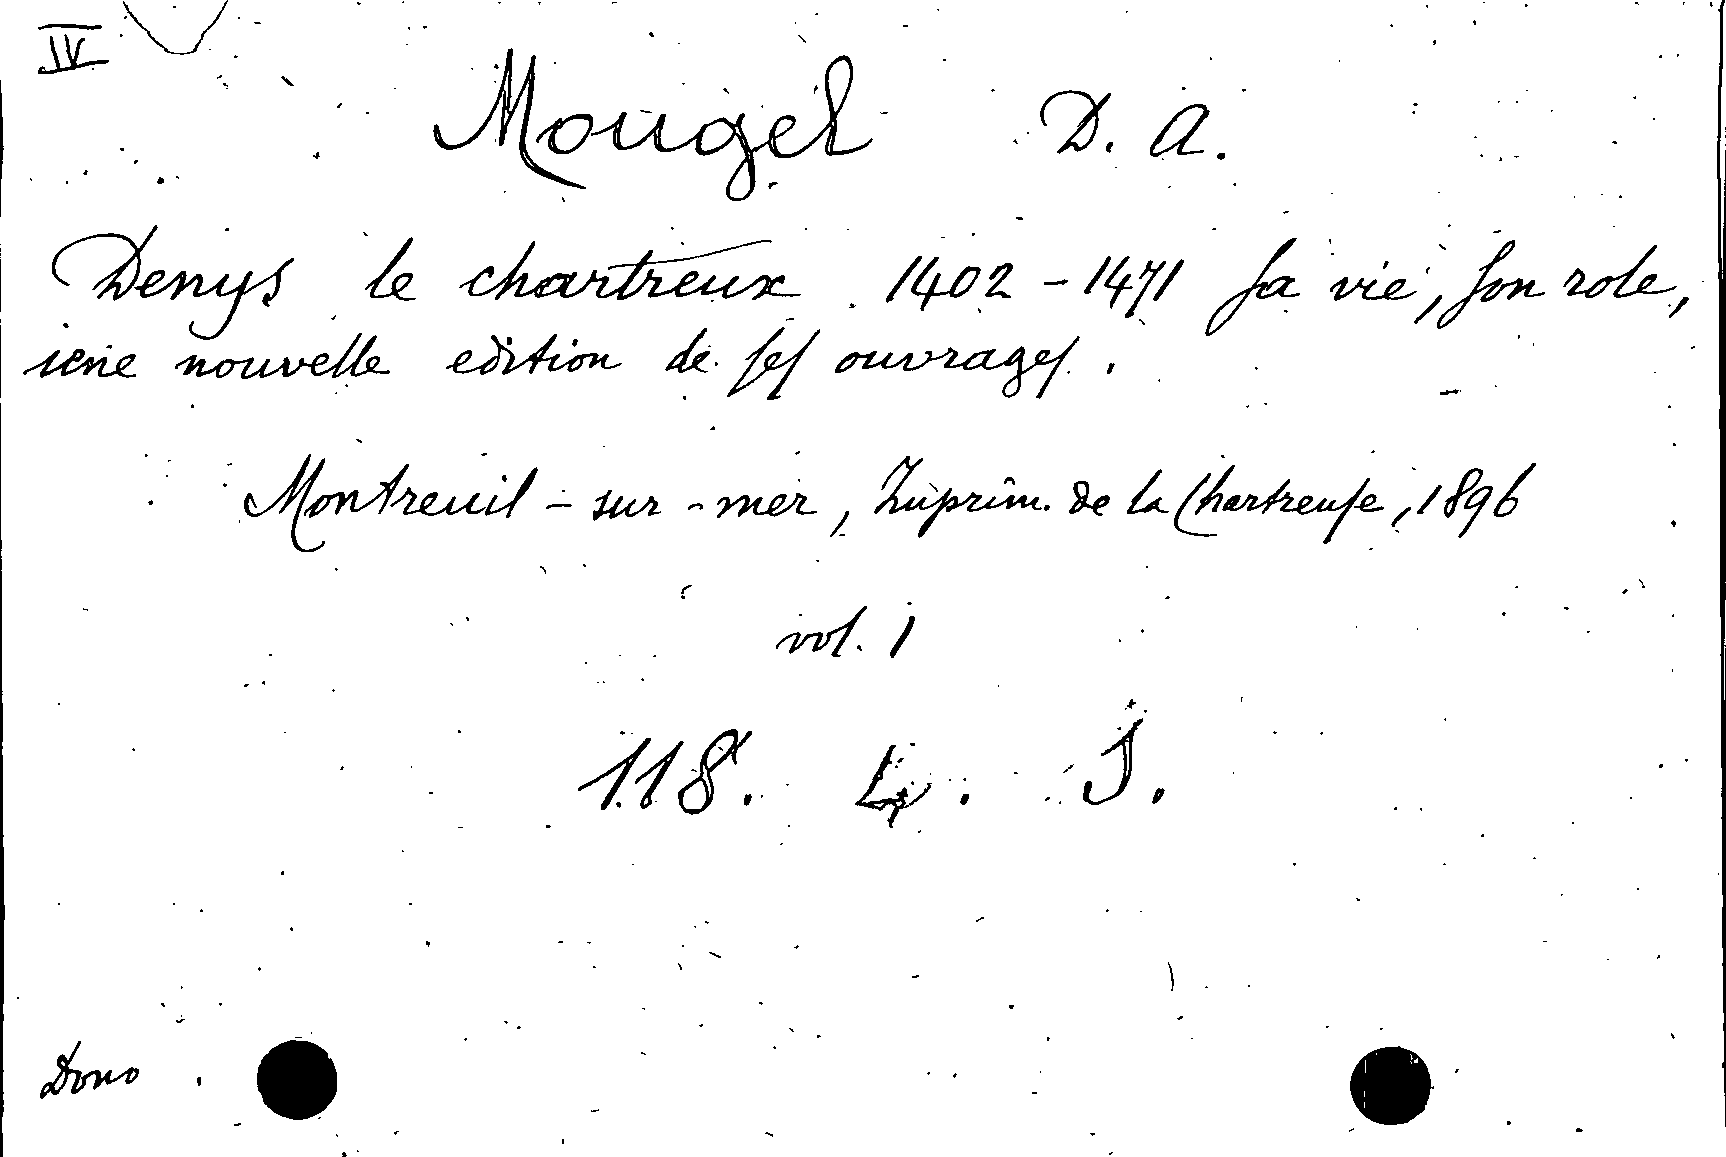 IV
Mougel D. A.
Denys le chartreux 1402-1471 sa vie, son role,
une nouvelle edition de ses ouvrages.
Montreuil-sur-mer, Imprim. de la Chartreuse, 1896
vol. 1
118. L. J.
Dono